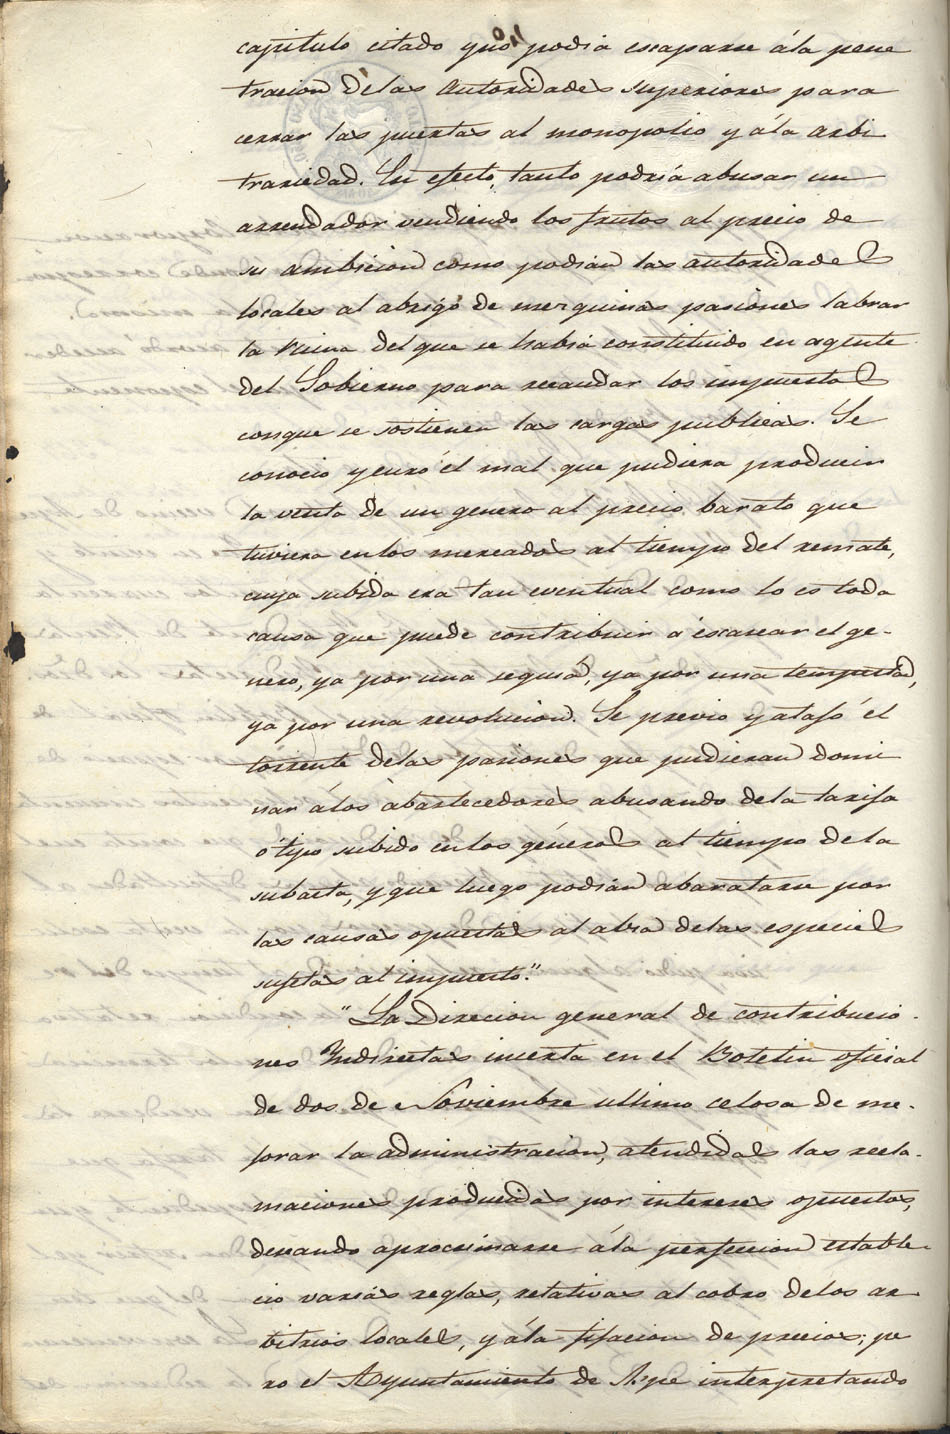 capitulo citado q.e no podia escaparse ála pene
tracion délas Autoridades superiores para
cerrar las puertas al monopolio y ála arbi
trariedad. En efecto, tanto podría abusar un
arrendador vendiendo los frutos al precio de
su ambicion como podian las autoridades
locales al abrigo de mezquinas pasiones labrar
la ruina del que se habia constituido en agente
del Gobierno para recaudar los impuestos
conque se sostienen las cargas publicas. Se
conocio y curó el mal que pudiera producir
la venta de un genero al precio barato que
tuviera en los mercados al tiempo del remate,
cuya subida era tan eventual como lo es toda
causa que puede contribuir a escasear el ge-
nero, ya por una sequia, ya por una tempestad,
ya por una revolucion. Se previo y atajó el
torrente delas pasiones que pudieran domi
nar álos abastecedores abusando dela tarifa
ó tipo subido en los géneros al tiempo dela
subasta, y que luego podian abaratarse por
las causas opuestas al alza delas especies
sujetas al impuesto."
"La Direcion general de contribucio-
nes Yndirectas inserta en el Boletin oficial
de dos de Noviembre ultimo celosa de me-
jorar la administracion, atendidas las recla-
maciones producidas por intereses opuestos,
deseando aprocsimarse ála perfeccion estable-
cio varias reglas, relativas al cobro delos ar-
bitrios locales, y ála fijacion de precios; pe
ro el Ayuntamiento de Aspe interpretando